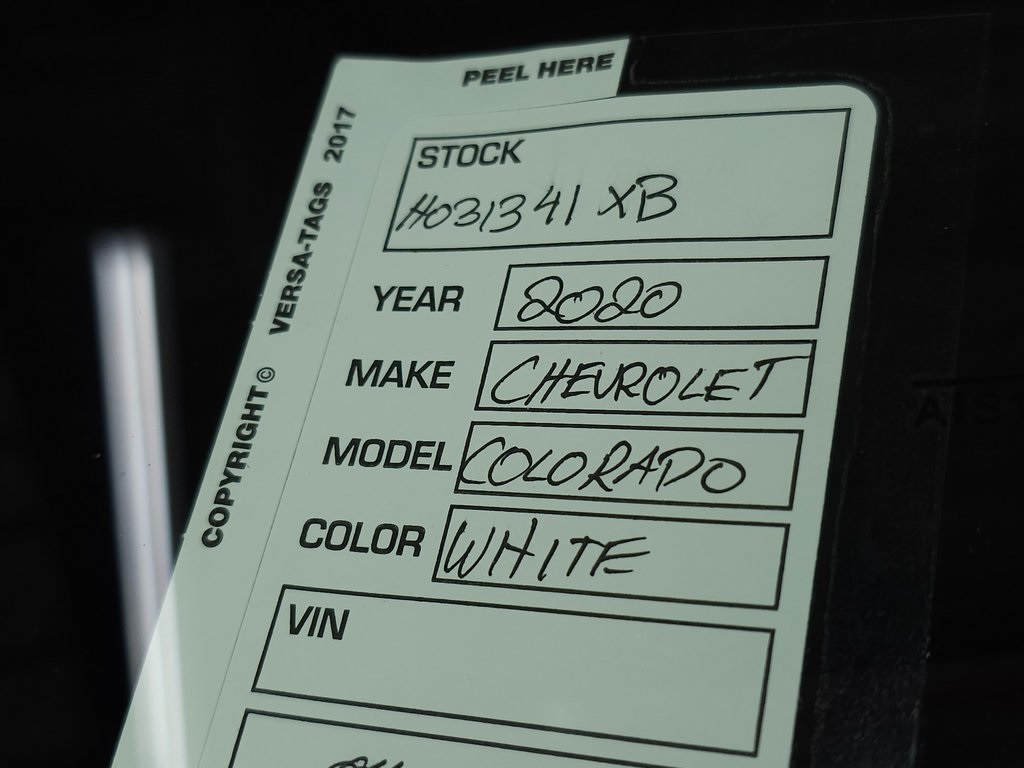 PEEL HERE
COPYRIGHT © VERSA-TAGS 2017
STOCK
H031341 XB
YEAR 2020
MAKE CHEVROLET
MODEL COLORADO
COLOR WHITE
VIN